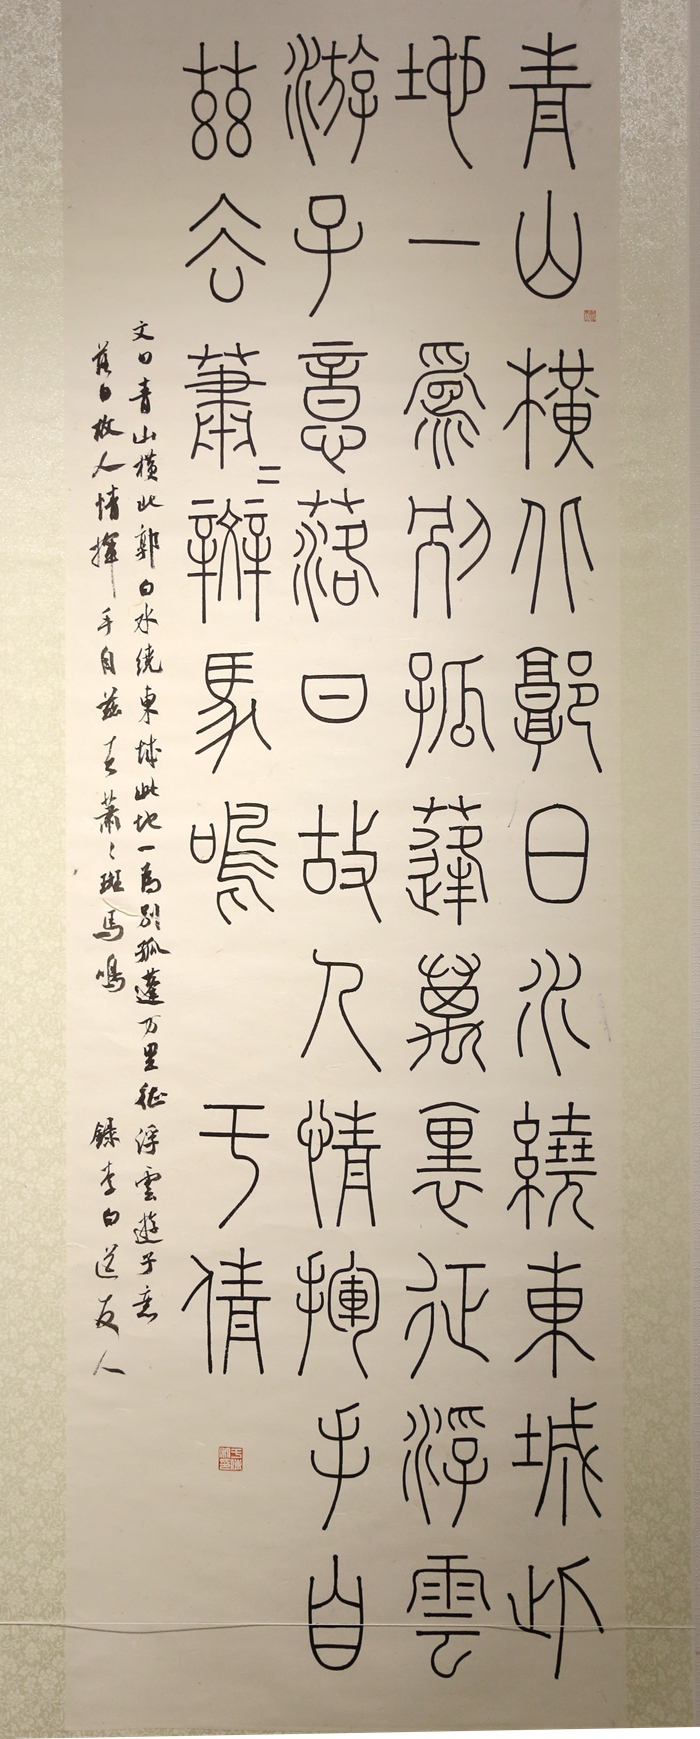 青山橫北郭白水繞東城此
地一爲別孤蓬萬裏征浮雲
游子意落日故人情揮手自
茲去蕭〻辨馬鳴 于倩
文曰青山橫北郭白水繞東城此地一爲別孤蓬万里征浮雲遊子意
落日故人情揮手自茲去蕭〻班馬鳴 錄李白送友人